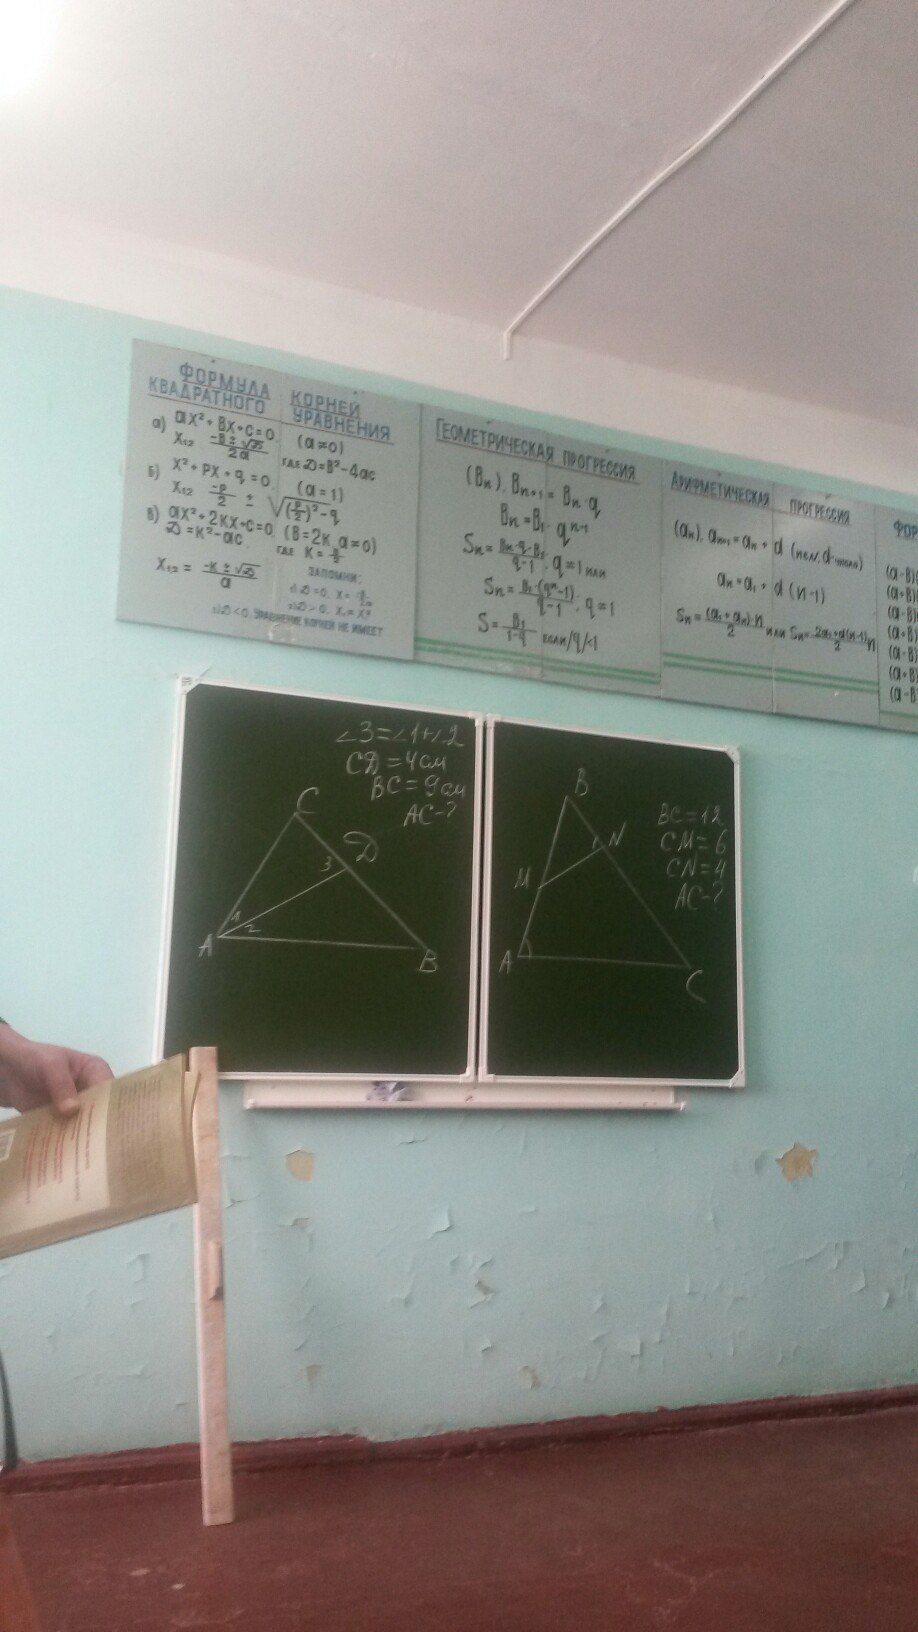 ФОРМУЛА КОРНЕЙ
КВАДРАТНОГО УРАВНЕНИЯ
а) ax² + вx + c = 0 (a ≠ 0)
x₁,₂ = (-в ± √D) / 2a где D = в² - 4ac
б) x² + px + q = 0 (a = 1)
x₁,₂ = -p/2 ± √((p/2)² - q)
в) ax² + 2kx + c = 0 (в = 2k, a ≠ 0)
D = k² - ac где k = в/2
x₁,₂ = (-k ± √D) / a
ЗАПОМНИ:
УРАВНЕНИЕ КОРНЕЙ НЕ ИМЕЕТ
ГЕОМЕТРИЧЕСКАЯ ПРОГРЕССИЯ
(вₙ). вₙ₊₁ = вₙ · q
вₙ = в₁ · qⁿ⁻¹
Sₙ = (вₙ · q - в₁) / (q - 1), q ≠ 1 или
Sₙ = в₁ · (qⁿ - 1) / (q - 1), q ≠ 1
S = в₁ / (1 - q) если |q| < 1
АРИФМЕТИЧЕСКАЯ ПРОГРЕССИЯ
(aₙ). aₙ₊₁ = aₙ + d (n∈N, d-число)
aₙ = a₁ + d (n - 1)
Sₙ = (a₁ + aₙ) · n / 2 или Sₙ = (2a₁ + d(n - 1)) n / 2
ФОР
(a - в)
(a + в)
(a - в)
(a + в)
(a - в)
(a + в)
(a - в)
∠3 = ∠1 + ∠2
CD = 4 см
BC = 9 см
AC - ?
C
D
3
1
2
A
B
B
N
M
A
C
BC = 12
CM = 6
CN = 4
AC - ?